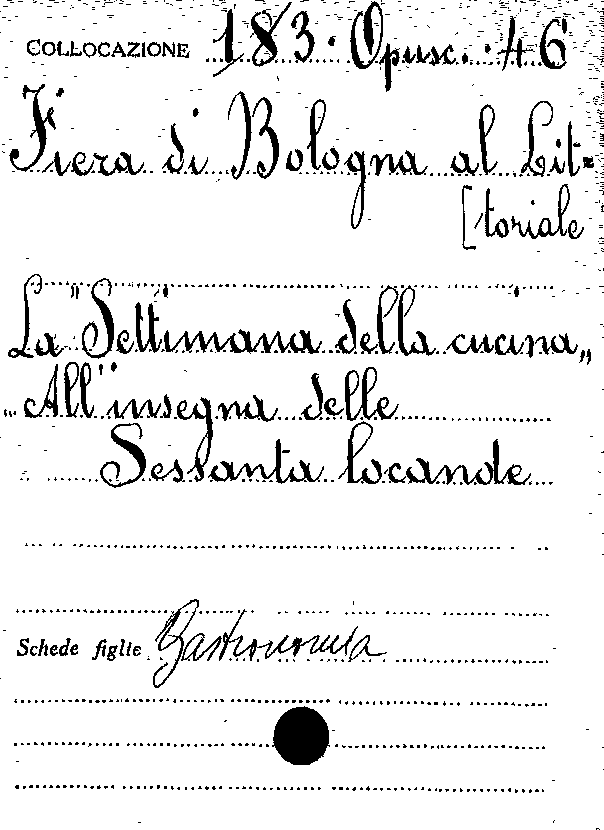 COLLOCAZIONE 183. Opusc. 46
Fiera di Bologna al Lit=
[toriale
La "Settimana della cucina„
„All'insegna delle
Sessanta locande
Schede figlie Gastronomia